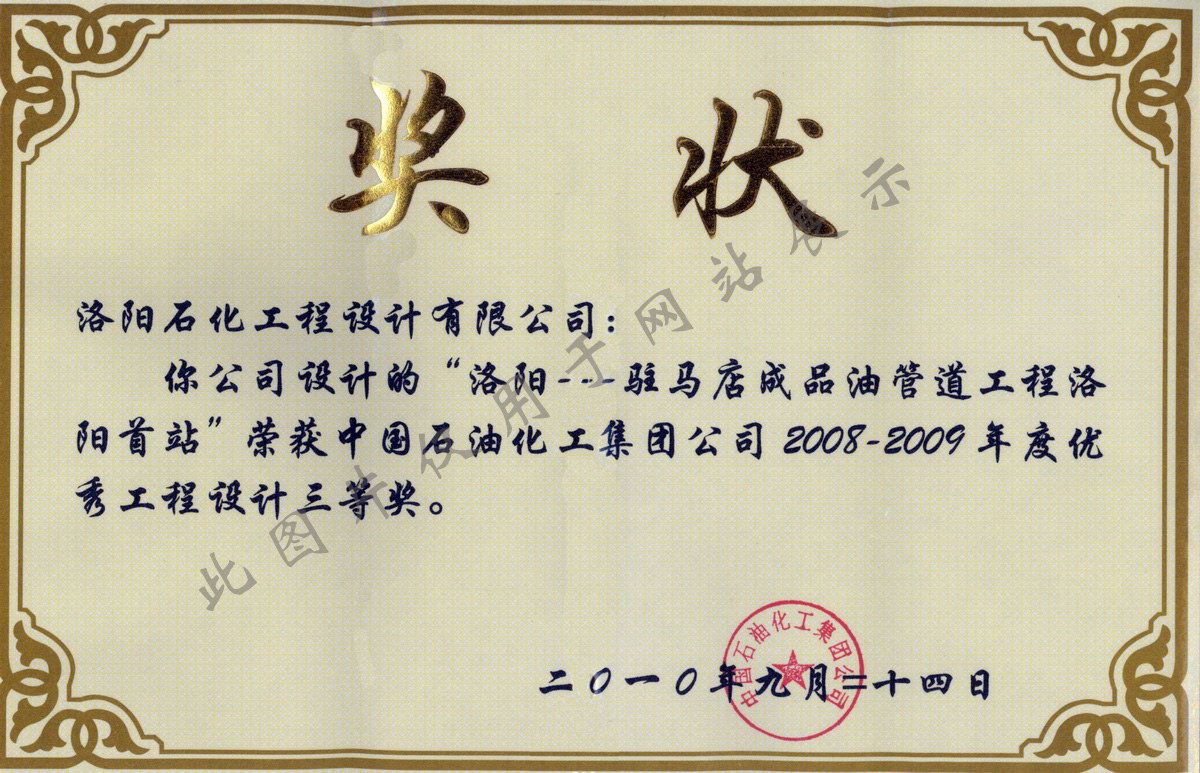 奖 状
洛阳石化工程设计有限公司：
你公司设计的“洛阳---驻马店成品油管道工程洛
阳首站”荣获中国石油化工集团公司2008-2009年度优
秀工程设计三等奖。
此图片仅用于网站展示
中国石油化工集团公司
二〇一〇年九月二十四日